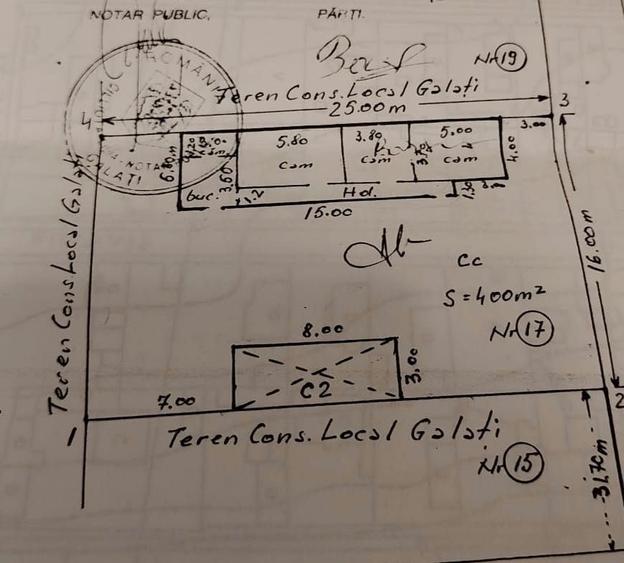 NOTAR PUBLIC,
PĂRȚI.
Nr 19
Teren Cons. Local Galați
25.00m
4
3
3.00
5.80
3.80
5.00
4.00
cam
cam
cam
6.80m
3.60
3.70
buc.
1.2
Hol.
1.30
15.00
Teren Cons Local Galați
16.00m
Cc
S = 400m²
Nr 17
8.00
3.00
C2
7.00
1
2
Teren Cons. Local Galați
Nr 15
31,70m
ROMÂNIA
NOTA
GALAȚI